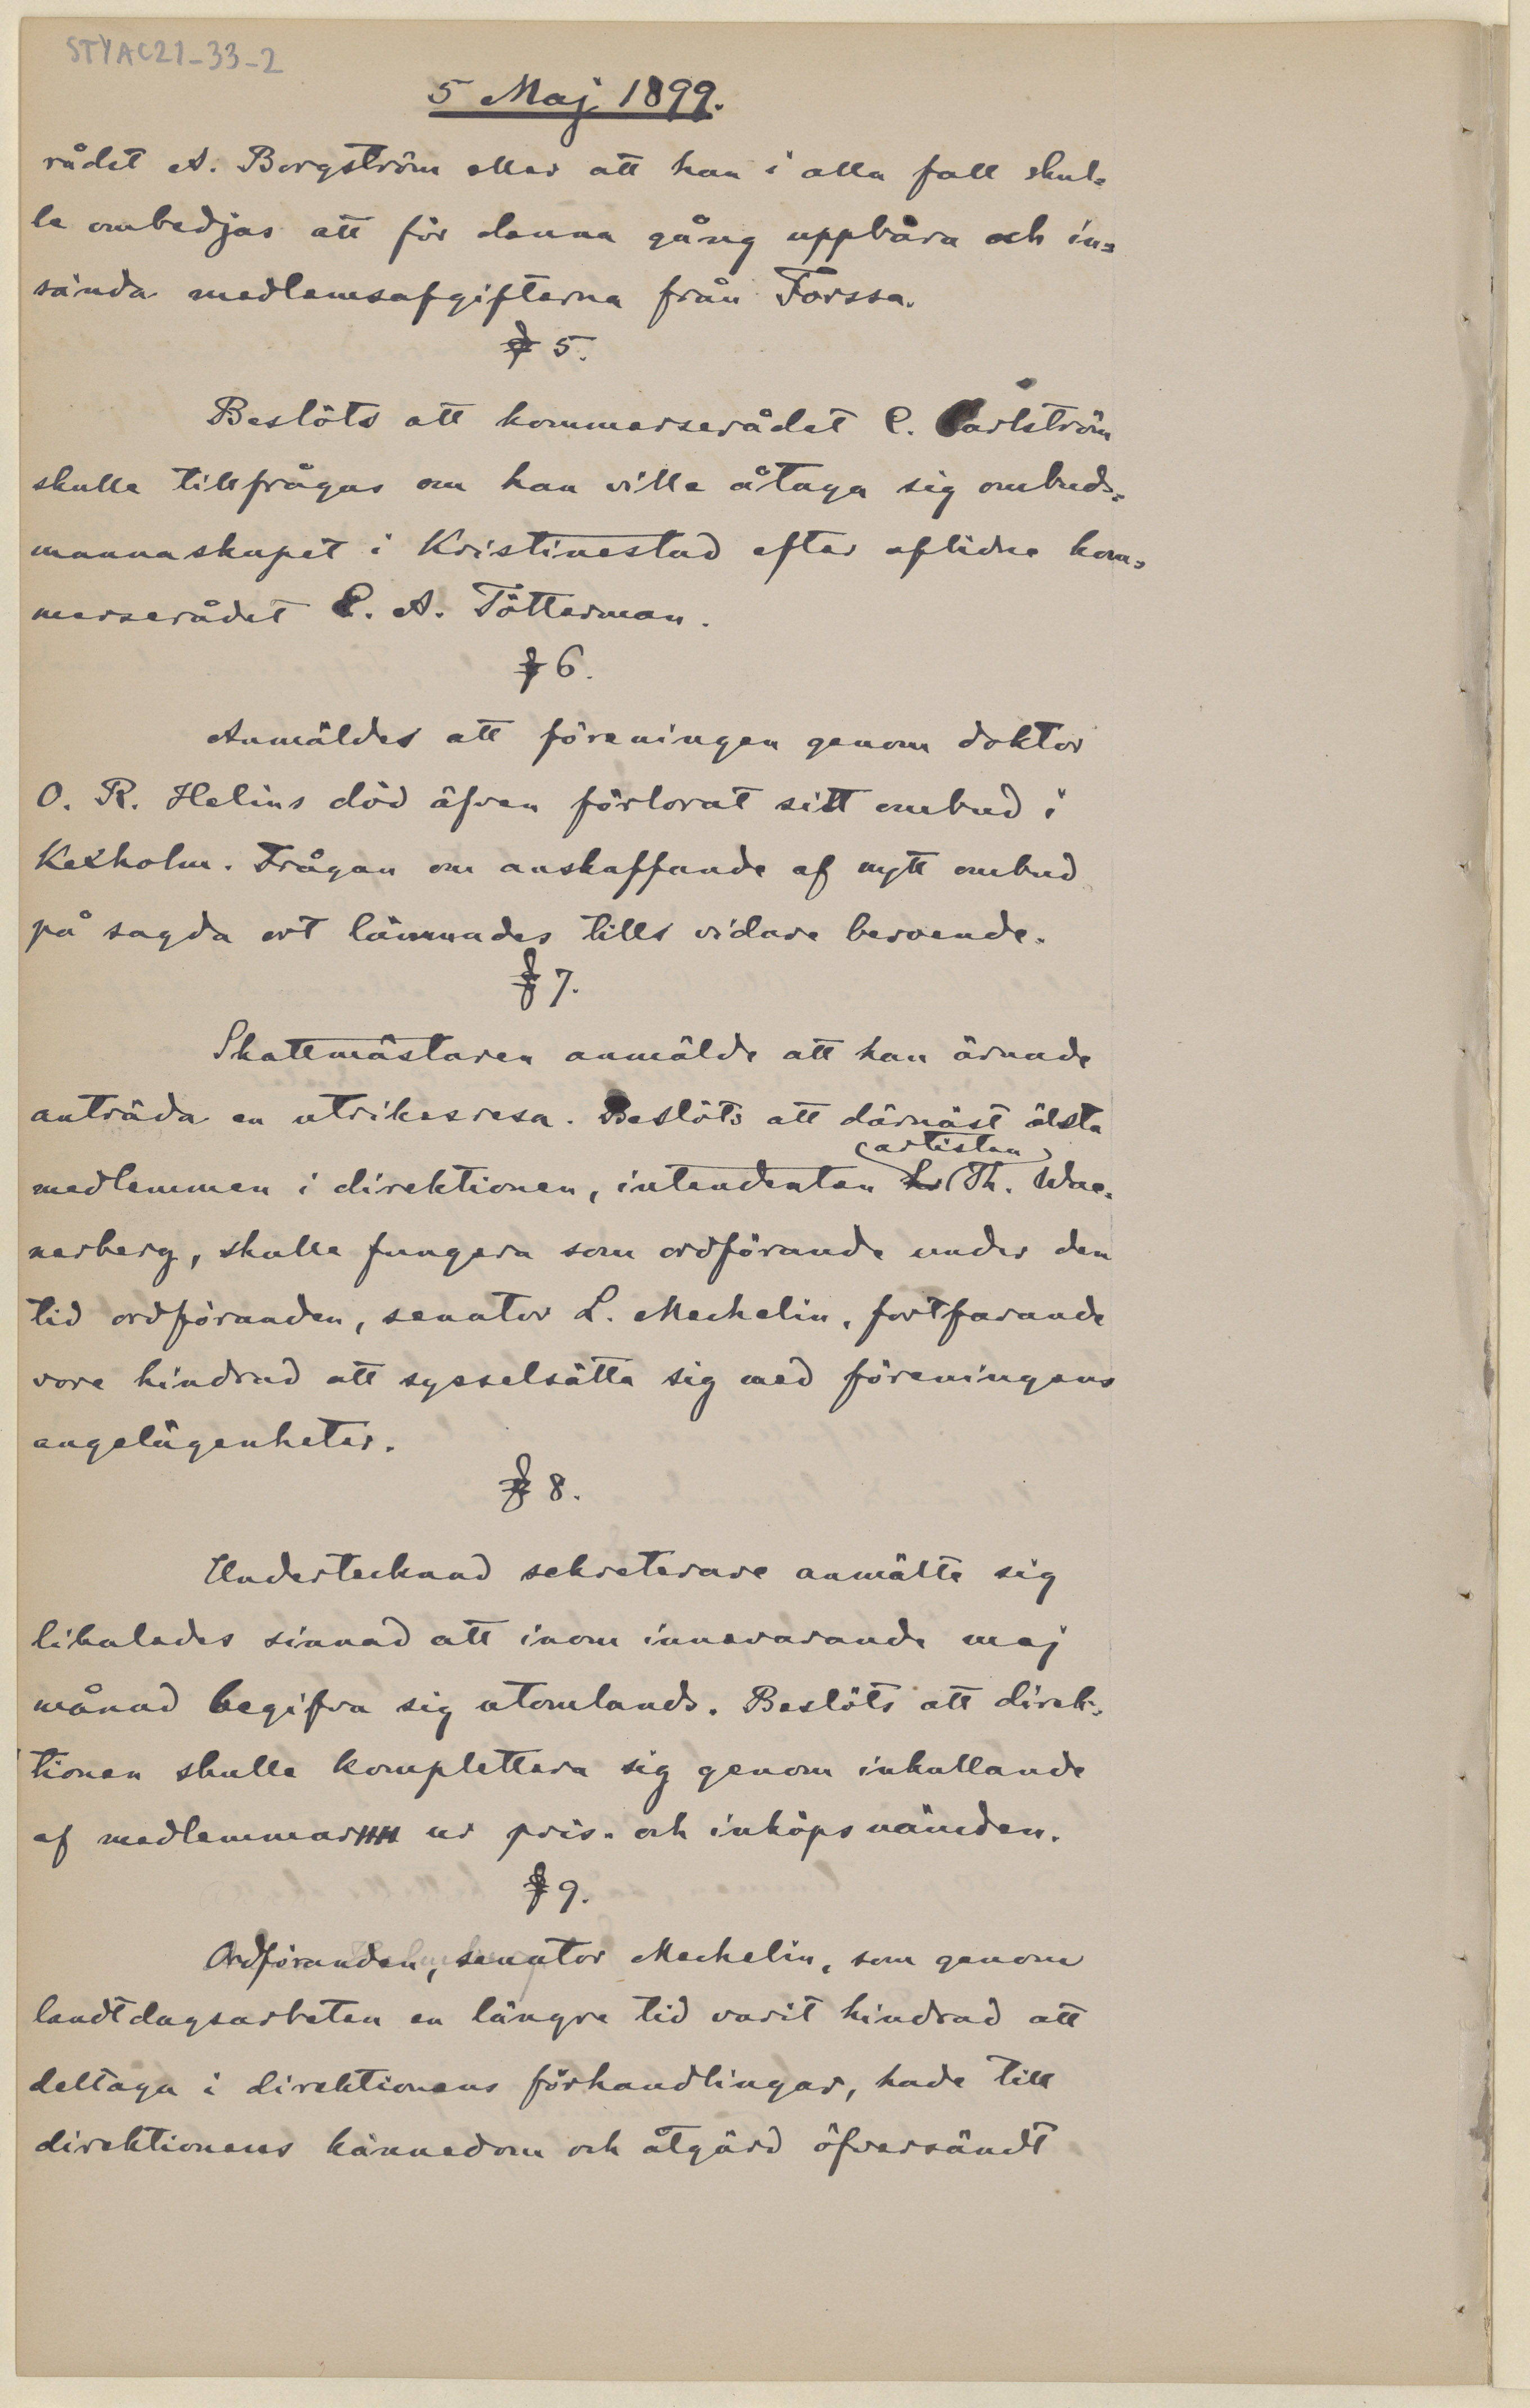 STYAC21-33-2
5 Maj 1899.
rådet A. Borgström eller att han i alla fall skul=
le ombedjas att för denna gång uppbära och in=
sända medlemsafgifterna från Forssa.
§ 5.
Beslöts att kommerserådet C. Carlström
skulle tillfrågas om han ville åtaga sig ombuds=
mannaskapet i Kristinestad efter aflidne kom=
merserådet C. A. Tötterman.
§ 6.
Anmäldes att föreningen genom doktor
O. R. Helins död äfven förlorat sitt ombud i
Kexholm. Frågan om anskaffande af nytt ombud
på sagda ort lämnades tills vidare beroende.
§ 7.
Skattmästaren anmälde att han ärnade
anträda en utrikesresa. Beslöts att därnäst älsta
artisten
medlemmen i direktionen, intendenten Th. Wae=
nerberg, skulle fungera som ordförande under den
tid ordföranden, senator L. Mechelin, fortfarande
vore hindrad att sysselsätta sig med föreningens
angelägenheter.
§ 8.
Undertecknad sekreterare anmälte sig
likaledes sinnad att inom innevarande maj
månad begifva sig utomlands. Beslöts att direk=
tionen skulle komplettera sig genom inkallande
af medlemmar ur pris- och inköpsnämden.
§ 9.
Ordföranden, senator Mechelin, som genom
landtdagsarbeten en längre tid varit hindrad att
deltaga i direktionens förhandlingar, hade till
direktionens kännedom och åtgärd öfversändt